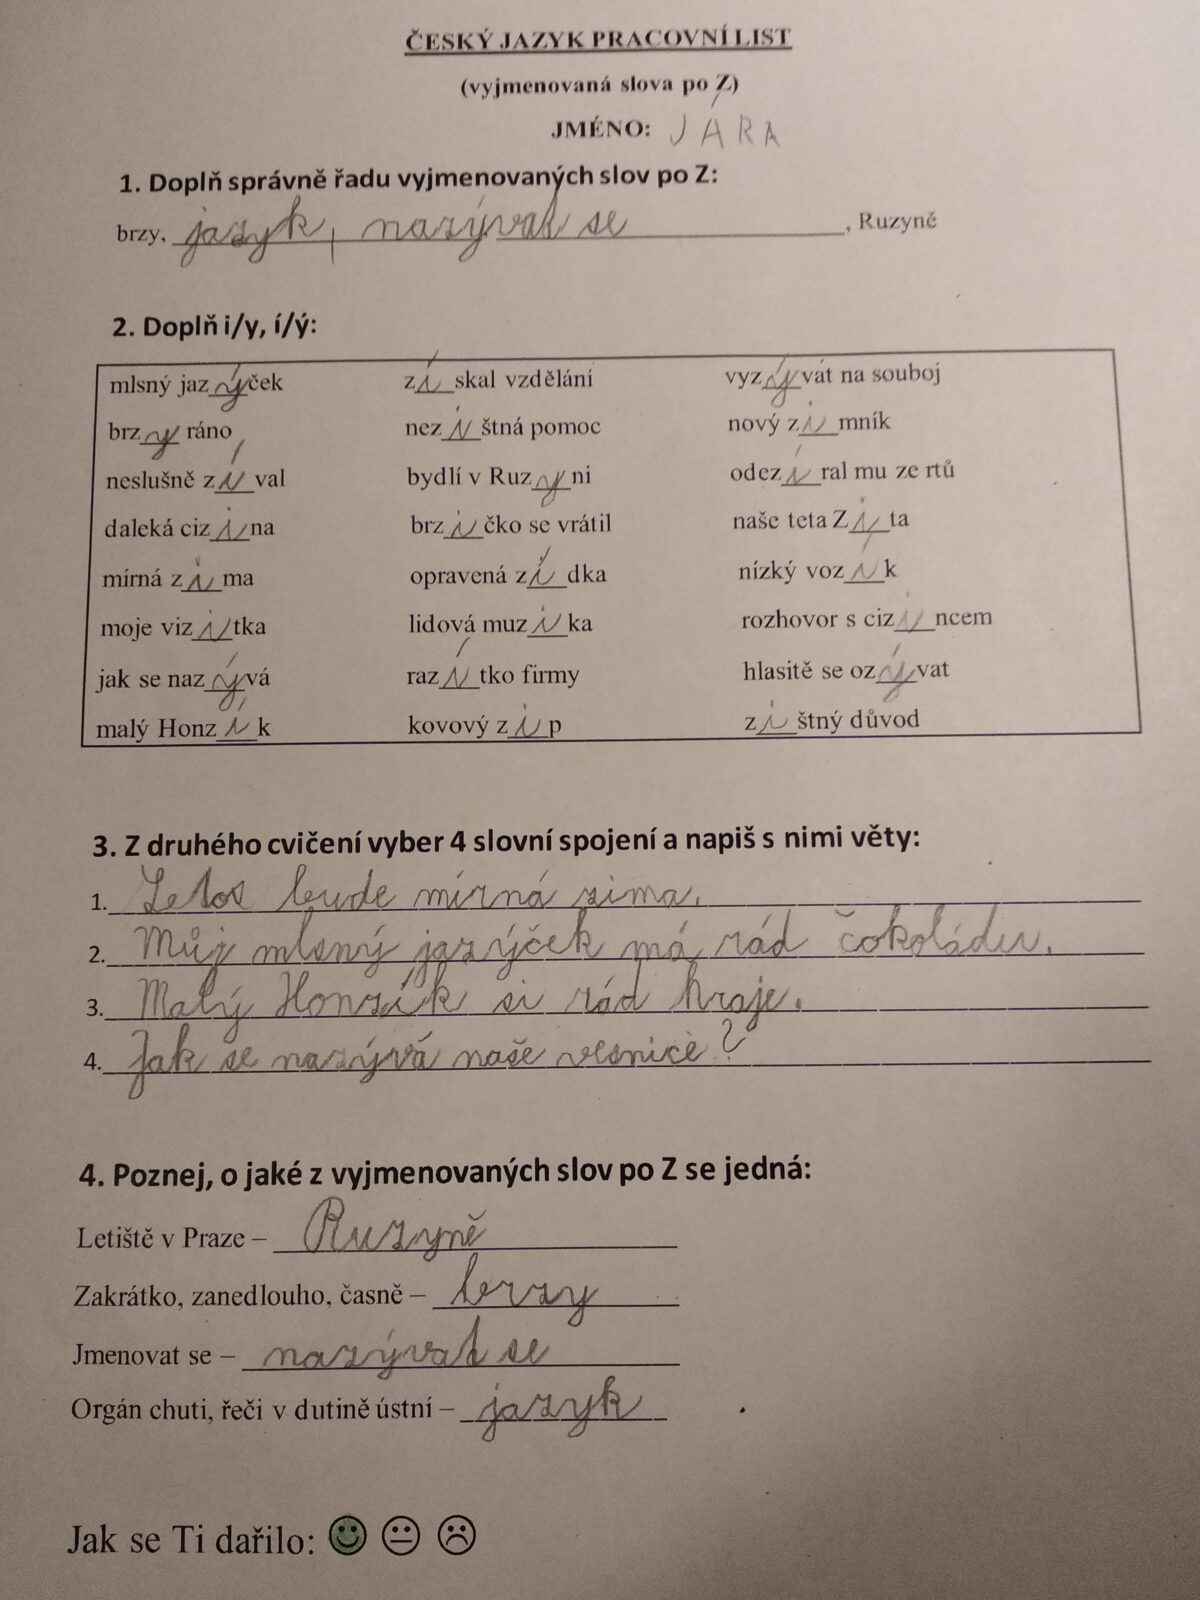 ČESKÝ JAZYK PRACOVNÍ LIST
(vyjmenovaná slova po Z)
JMÉNO: JÁRA
1. Doplň správně řadu vyjmenovaných slov po Z:
brzy, jazyk, nazývat se, Ruzyně
2. Doplň i/y, í/ý:
mlsný jazýček získal vzdělání vyzývat na souboj
brzy ráno nezištná pomoc nový zimník
neslušně zíval bydlí v Ruzyni odezíral mu ze rtů
daleká cizina brzičko se vrátil naše teta Zita
mírná zima opravená zídka nízký vozík
moje vizitka lidová muzika rozhovor s cizincem
jak se nazývá razítko firmy hlasitě se ozývat
malý Honzík kovový zip zištný důvod
3. Z druhého cvičení vyber 4 slovní spojení a napiš s nimi věty:
1. Letos bude mírná zima.
2. Můj mlsný jazýček má rád čokoládu.
3. Malý Honzík si rád hraje.
4. Jak se nazývá naše vesnice?
4. Poznej, o jaké z vyjmenovaných slov po Z se jedná:
Letiště v Praze – Ruzyně
Zakrátko, zanedlouho, časně – brzy
Jmenovat se – nazývat se
Orgán chuti, řeči v dutině ústní – jazyk
Jak se Ti dařilo: